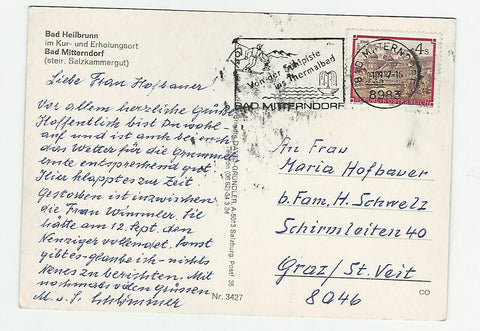 Bad Heilbrunn
im Kur- und Erholungsort
Bad Mitterndorf
(steir. Salzkammergut)
Liebe Frau Hofbauer
Vor allem herzliche Grüße
Hoffentlich bist Du wohl-
auf und ist auch bereich
das Wetter für die Grummet
ernte entsprechend gut.
Hier klappt es zur Zeit.
Gestorben ist inzwischen
die Frau Wimmler. Sie
hätte am 12. Sept. den
vollendet. Sonst
gibt es - glaube ich - nichts
zu berichten. Mit
nochmals vielen Grüssen
M. u. J.
Nr. 3427
DAVID GRÜNDLER, A-5013 Salzburg, Postf. 35
Von der Schipiste
ins Thermalbad
BAD MITTERNDORF
BAD MITTERNDORF
8983
4 S
REPUBLIK ÖSTERREICH
An Frau
Maria Hofbauer
b. Fam. H. Schwelz
Schirmleiten 40
Graz/St. Veit
8046
CO